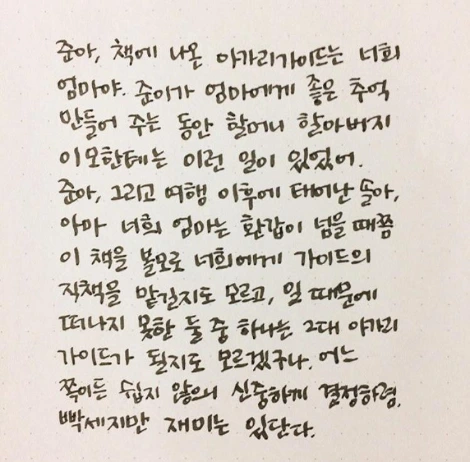 준아, 책에 나온 아가리가이드는 너희
엄마야. 준이가 엄마에게 좋은 추억
만들어 주는 동안 할머니 할아버지
이모한테는 이런 일이 있었어.
준아, 그리고 여행 이후에 태어난 솔아,
아마 너희 엄마는 환갑이 넘을 때쯤
이 책을 볼모로 너희에게 가이드의
직책을 맡길지도 모르고, 일 때문에
떠나지 못한 둘 중 하나는 그대 아가리
가이드가 될지도 모르겠구나. 어느
쪽이든 쉽지 않으니 신중하게 결정하렴.
빡세지만 재미는 있단다.